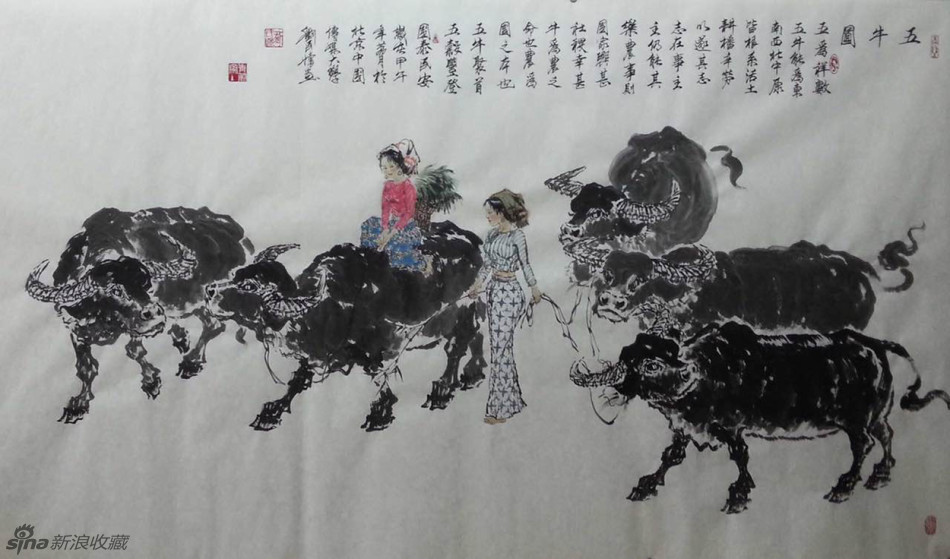 五牛圖
五為祥數
五牛能為東
南西北中原
皆根系活土
耕播辛勞
以遂其志
志在事主
主仍能其
樂農事則
國家興甚
社稷幸甚
牛為農之
命世農為
國之存也
五牛聚首
五穀豐登
國泰民安
歲次甲午
年月於
北京中國
傳媒大學
畫
sina新浪收藏